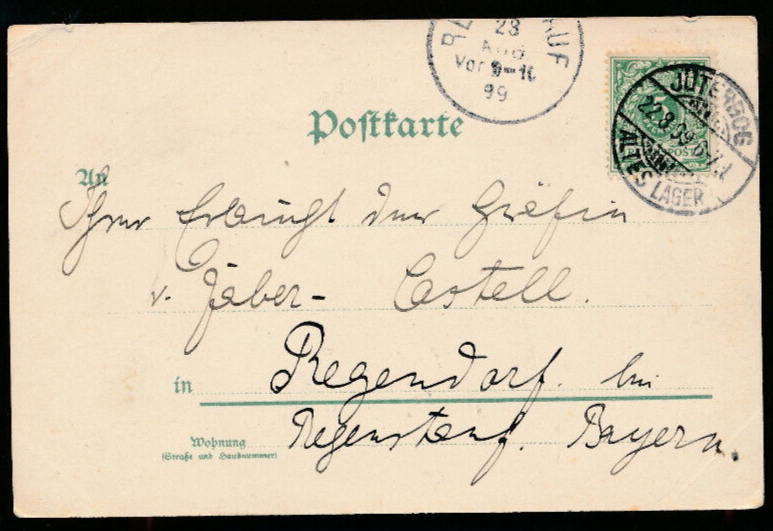 28
Vor 9-10
99
JÜTERBOG
22.8.99.6-7.N
ALTES LAGER
Postkarte
An
Ihrer Erlaucht der Gräfin
v. Faber- Castell.
in Regendorf. bei
Wohnung
(Straße und Hausnummer)
Regenstauf. Bayern.